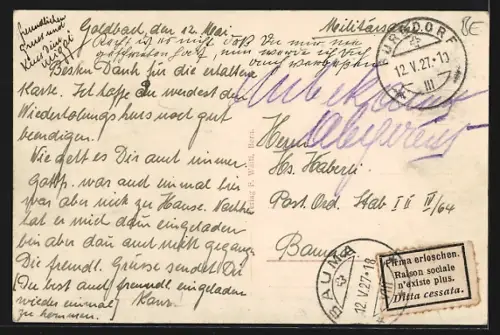 freundlichen
Gruss und
Kuss
Goldbach, den 12. Mai
Militärs
Recht ist es nicht, daß Du mir nie
Besten Dank für die erhaltene
Karte. Ich hoffe Du werdest den
Wiederholungskurs noch gut
beendigen.
Wie geht es Dir amt immer
Gottfr. war auch einmal hier
war aber nicht zu Hause. Nachher
hat er mich dann eingeladen
bin aber dann nicht gegangen
Die freundl. Grüsse sendet Dir
(Du bist auch freundl eingeladen
wieder einmal) Hans
zu kommen.
BURGDORF
12.V.27.-10
III
Unbekannt
Abgereist
Herrn
Hs. Häberli
Post. Ord. Stab I II IV/64
Verlag F. Bern.
BAUMA
12.V.27.-18
Firma erloschen.
Raison sociale
n'existe plus.
Ditta cessata.